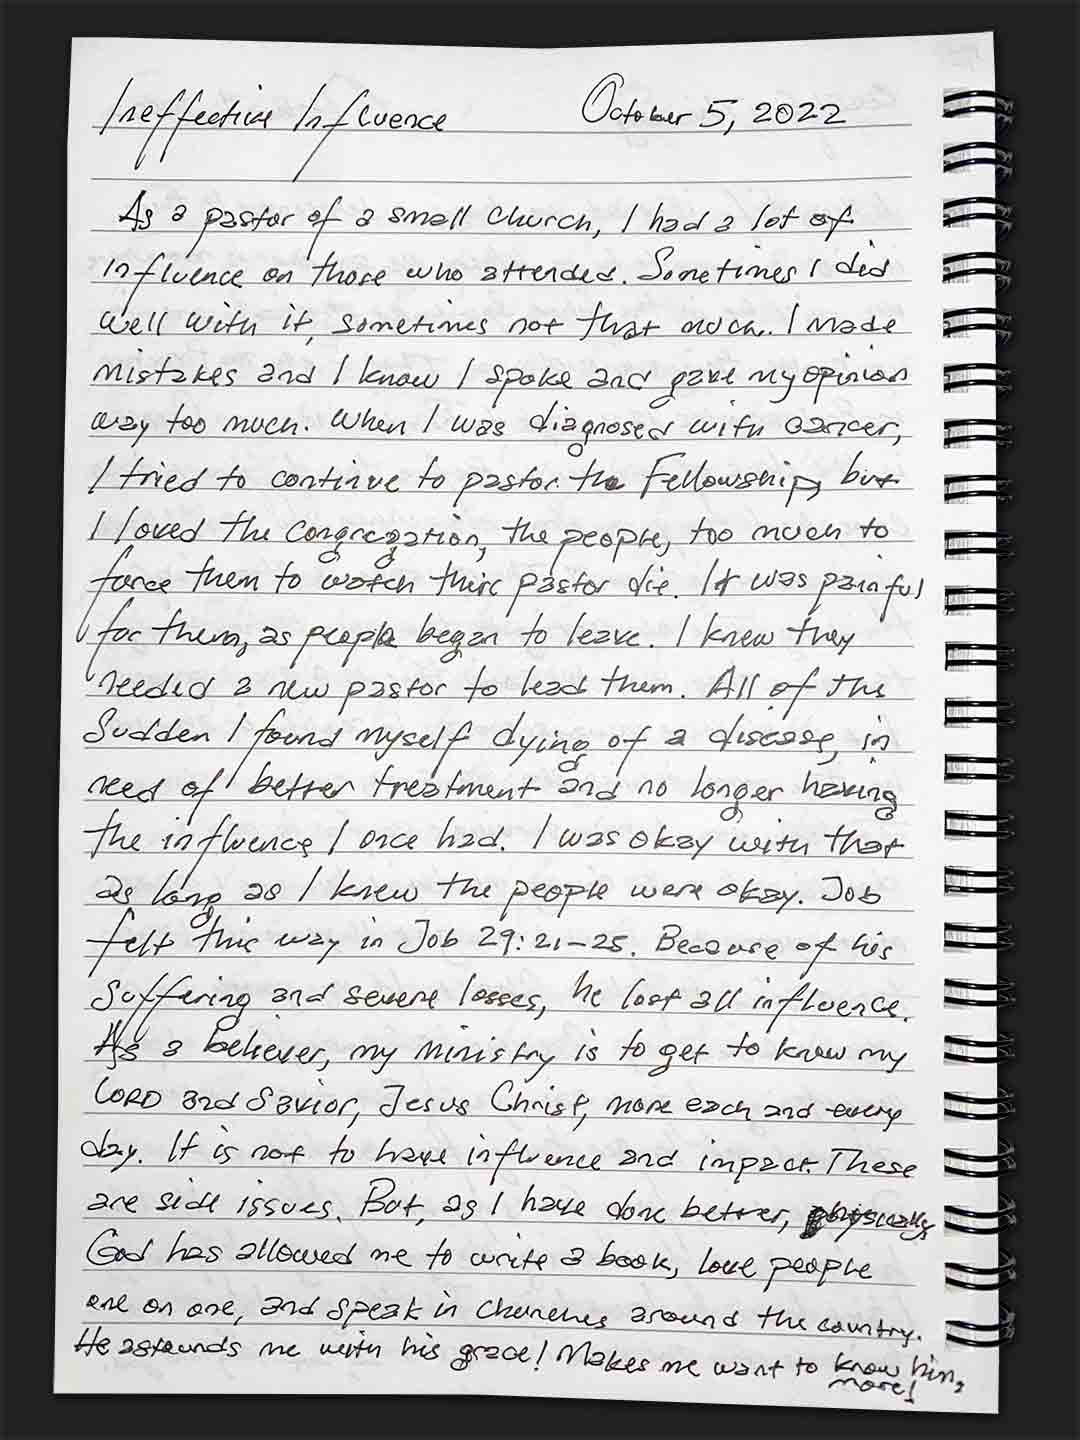 Ineffective Influence October 5, 2022
As a pastor of a small church, I had a lot of
influence on those who attended. Sometimes I did
well with it, sometimes not that much. I made
mistakes and I know I spoke and gave my opinion
way too much. When I was diagnosed with cancer,
I tried to continue to pastor the Fellowship, but
I loved the congregation, the people, too much to
force them to watch their pastor die. It was painful
for them, as people began to leave. I knew they
needed a new pastor to lead them. All of the
Sudden I found myself dying of a disease, in
need of better treatment and no longer having
the influence I once had. I was okay with that
as long as I knew the people were okay. Job
felt this way in Job 29:21-25. Because of his
suffering and severe losses, he lost all influence.
As a believer, my ministry is to get to know my
LORD and Savior, Jesus Christ, more each and every
day. It is not to have influence and impact. These
are side issues. But, as I have done better, physically,
God has allowed me to write a book, love people
one on one, and speak in churches around the country.
He astounds me with his grace! Makes me want to know him,
more!